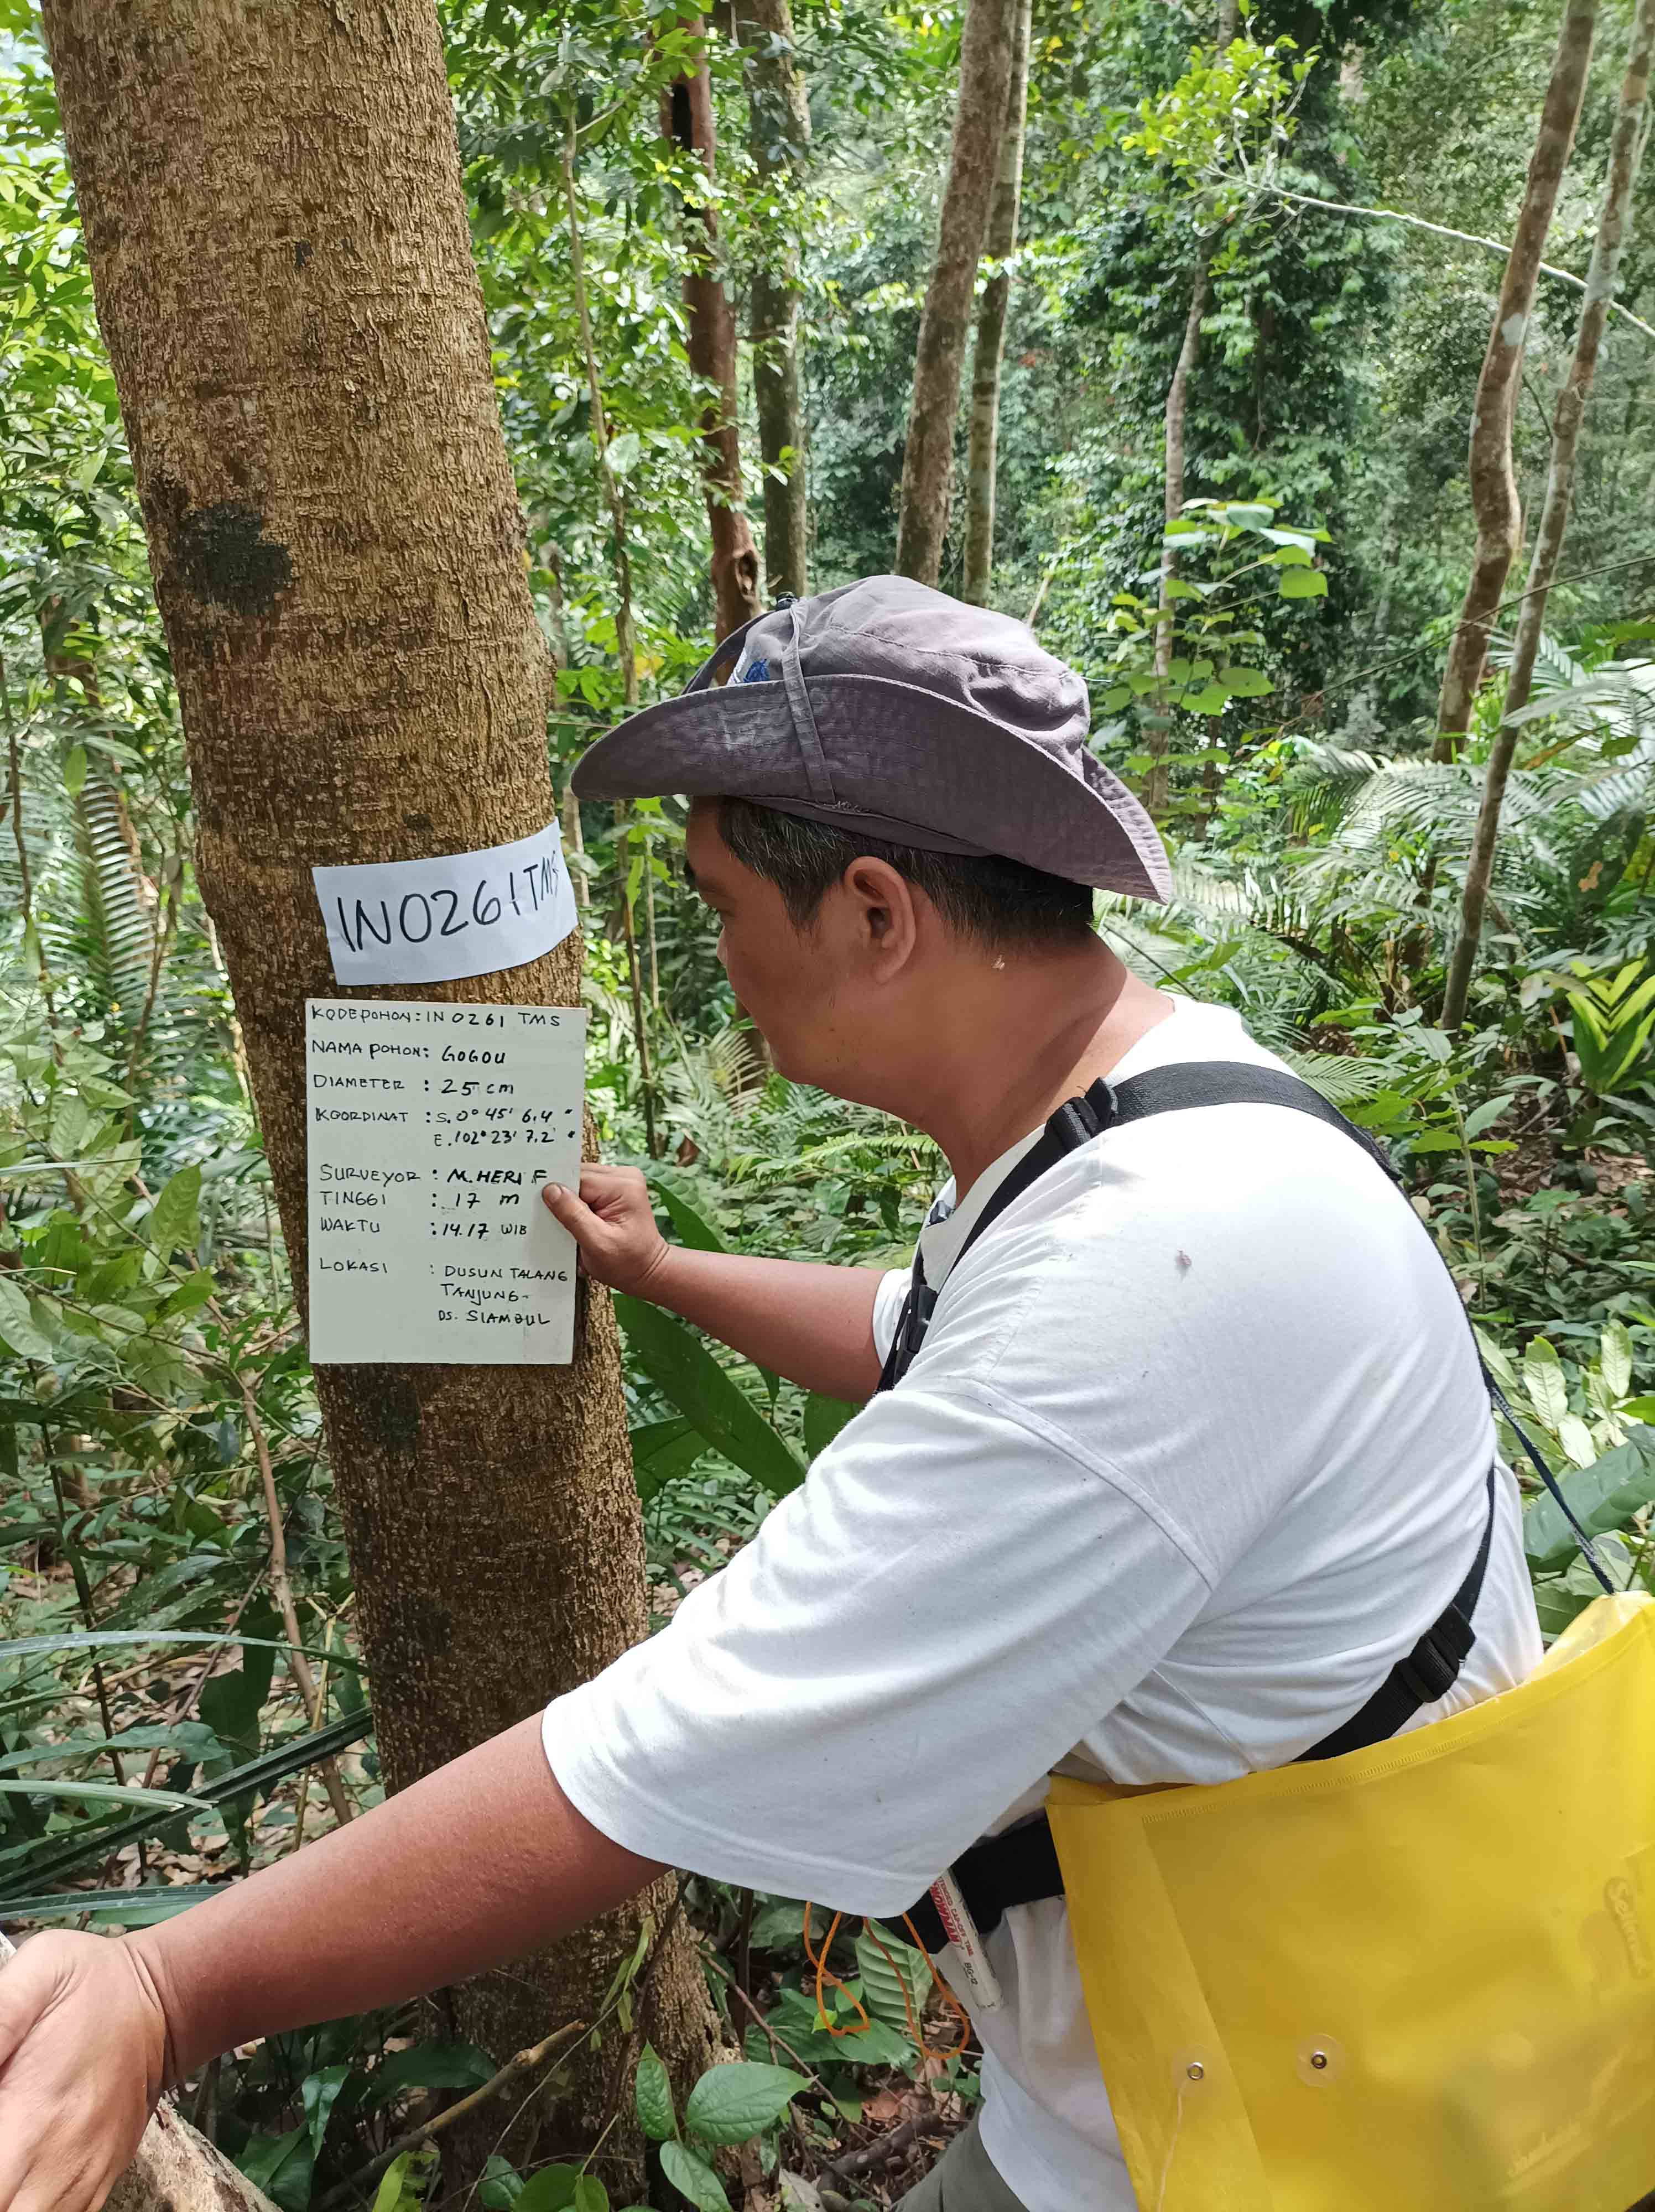 IN0261 TMS
KODE POHON: IN 0261 TMS
NAMA POHON: GOGOU
DIAMETER : 25 cm
KOORDINAT : S. 0° 45' 6,4"
E. 102° 23' 7,2"
SURVEYOR : M. HERI F
TINGGI : 17 m
WAKTU : 14.17 WIB
LOKASI : DUSUN TALANG
TANJUNG-
DS. SIAMBUL
SNOWMAN
BG-12